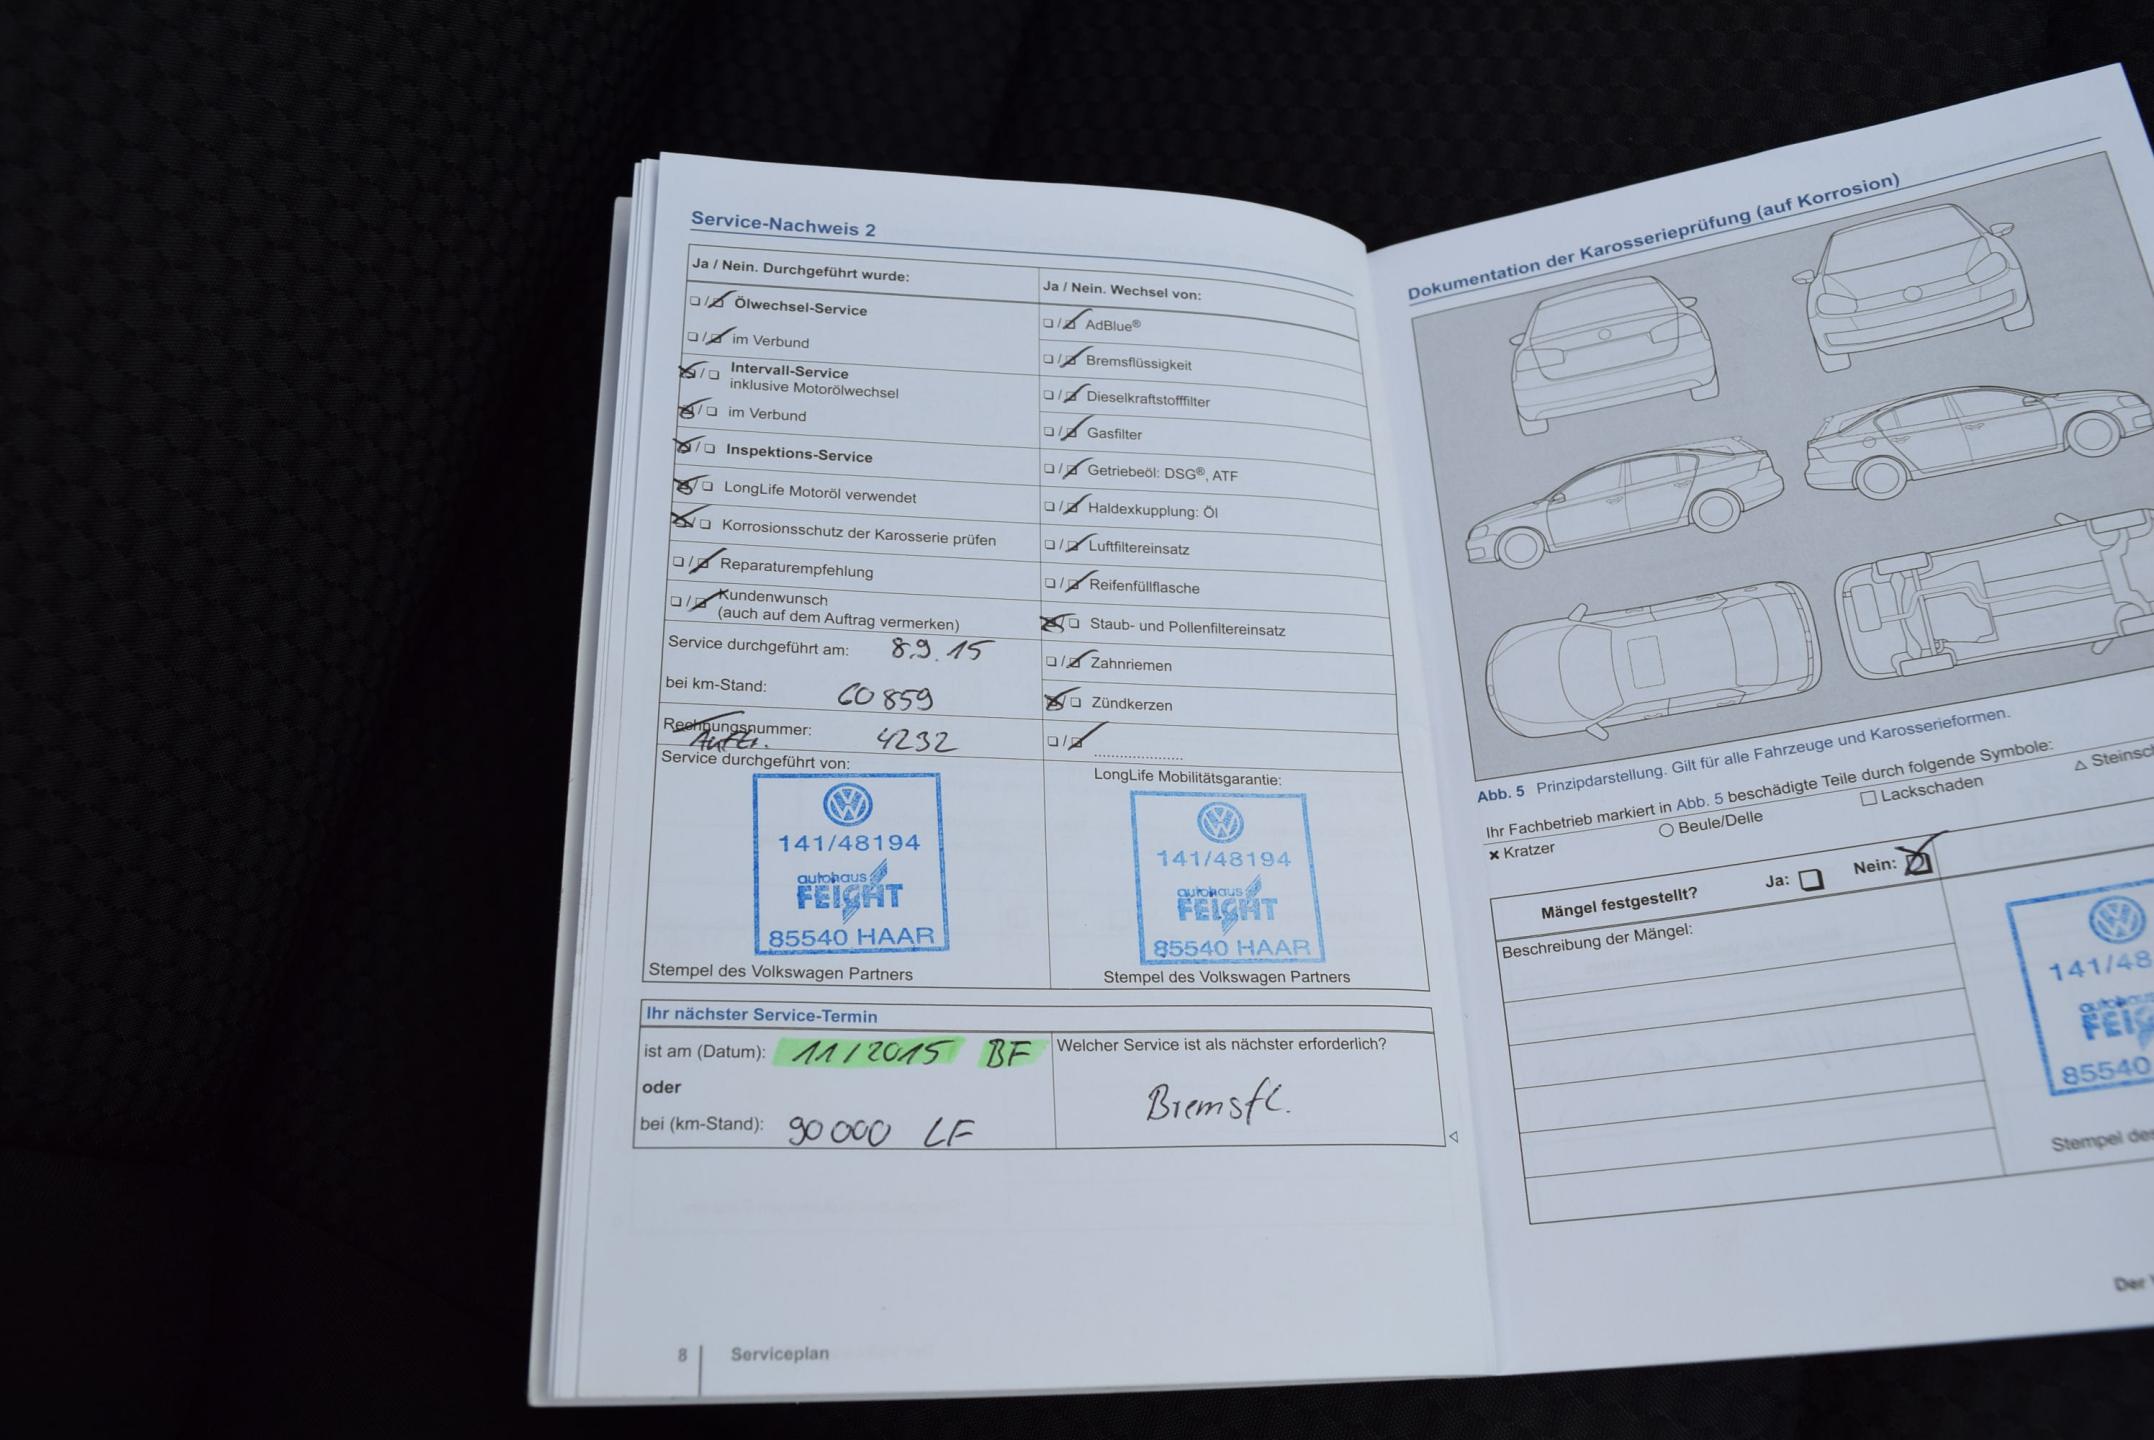 Service-Nachweis 2
Ja / Nein. Durchgeführt wurde:
Ölwechsel-Service
im Verbund
Intervall-Service
inklusive Motorölwechsel
im Verbund
Inspektions-Service
LongLife Motoröl verwendet
Korrosionsschutz der Karosserie prüfen
Reparaturempfehlung
Kundenwunsch
(auch auf dem Auftrag vermerken)
Service durchgeführt am: 8.9.15
bei km-Stand: 60859
Rechnungsnummer: 4232
Auftr.
Service durchgeführt von:
141/48194
autohaus
FEICHT
85540 HAAR
Stempel des Volkswagen Partners
Ja / Nein. Wechsel von:
AdBlue®
Bremsflüssigkeit
Dieselkraftstofffilter
Gasfilter
Getriebeöl: DSG®, ATF
Haldexkupplung: Öl
Luftfiltereinsatz
Reifenfüllflasche
Staub- und Pollenfiltereinsatz
Zahnriemen
Zündkerzen
LongLife Mobilitätsgarantie:
141/48194
autohaus
FEICHT
85540 HAAR
Stempel des Volkswagen Partners
Ihr nächster Service-Termin
ist am (Datum): 11/2015 BF
oder
bei (km-Stand): 90000 LF
Welcher Service ist als nächster erforderlich?
Bremsfl.
8 Serviceplan
Dokumentation der Karosserieprüfung (auf Korrosion)
Abb. 5 Prinzipdarstellung. Gilt für alle Fahrzeuge und Karosserieformen.
Ihr Fachbetrieb markiert in Abb. 5 beschädigte Teile durch folgende Symbole:
× Kratzer ○ Beule/Delle □ Lackschaden △ Steinsc
Mängel festgestellt? Ja: Nein:
Beschreibung der Mängel:
141/48
autohaus
FEIC
85540
Stempel des
Der